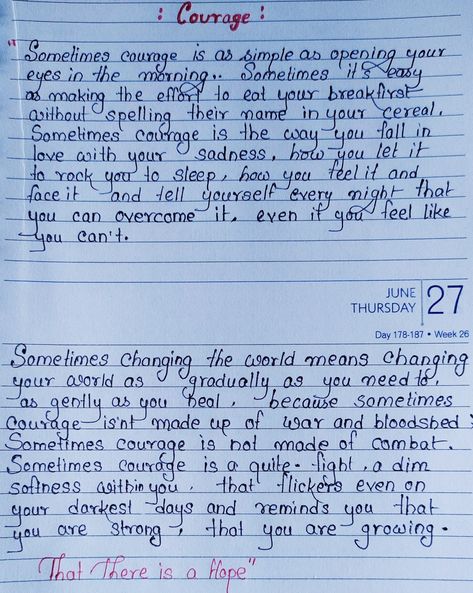 : Courage :
"Sometimes courage is as simple as opening your
eyes in the morning.. Sometimes it's easy
as making the effort to eat your breakfirst
without spelling their name in your cereal.
Sometimes courage is the way you fall in
love with your sadness, how you let it
to rock you to sleep, how you feel it and
face it and tell yourself every night that
you can overcome it, even if you feel like
you can't.
JUNE
THURSDAY 27
Day 178-187 • Week 26
Sometimes changing the world means changing
your world as gradually as you need to,
as gently as you heal, because sometimes
courage isn't made up of war and bloodshed;
Sometimes courage is not made of combat.
Sometimes courage is a quite- light, a dim
softness within you, that flickers even on
your darkest days and reminds you that
you are strong, that you are growing.
That There is a Hope"